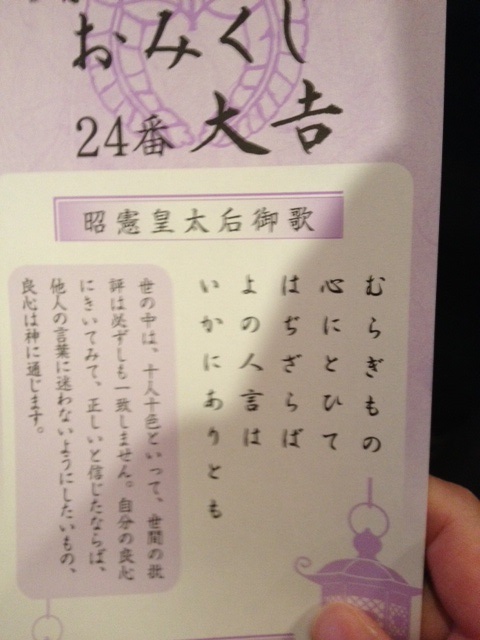 おみくじ
24番 大吉
昭憲皇太后御歌
むらぎもの
心にとひて
はぢざらば
よの人言は
いかにありとも
世の中は、十人十色といって、世間の批
評は必ずしも一致しません。自分の良心
にきいてみて、正しいと信じたならば、
他人の言葉に迷わないようにしたいもの、
良心は神に通じます。